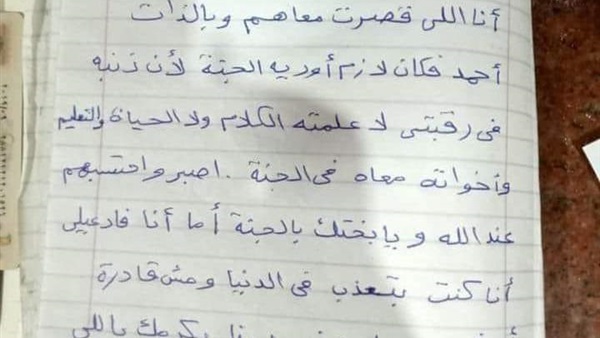 أنا اللى قصرت معاهم وبالذات
أحمد فكان لازم أوديه الجنة لأن ذنبه
فى رقبتى لا علمته الكلام ولا الحياة والتعليم
وأخواته معاه فى الجنة . اصبر واحتسبهم
عند الله ويا بختك بالجنة أما أنا فادعيلى
أنا كنت بتعذب فى الدنيا ومش قادرة